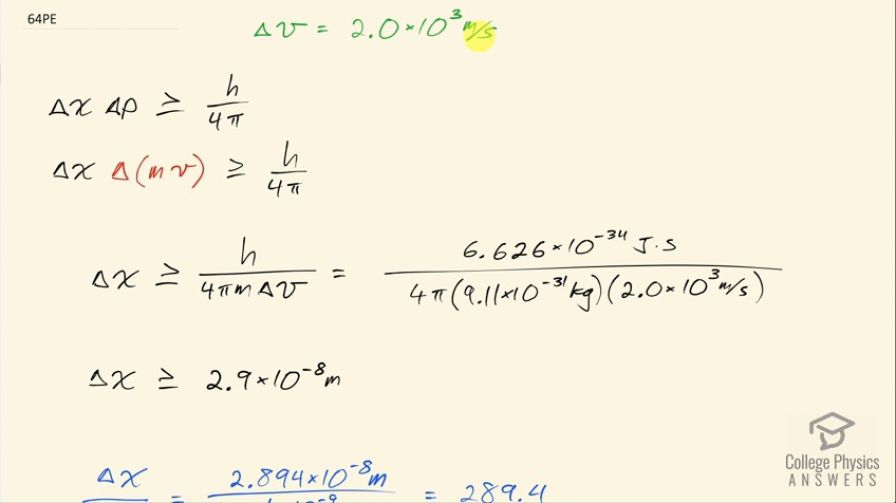 64PE
Δv = 2.0×10³ m/s
Δx Δp ≥ h/4π
Δx Δ(mv) ≥ h/4π
Δx ≥ h/4πmΔv = 6.626×10⁻³⁴ J·s / 4π(9.11×10⁻³¹ kg)(2.0×10³ m/s)
Δx ≥ 2.9×10⁻⁸ m
Δx = 2.894×10⁻⁸ m = 289.4
College Physics
ANSWERS